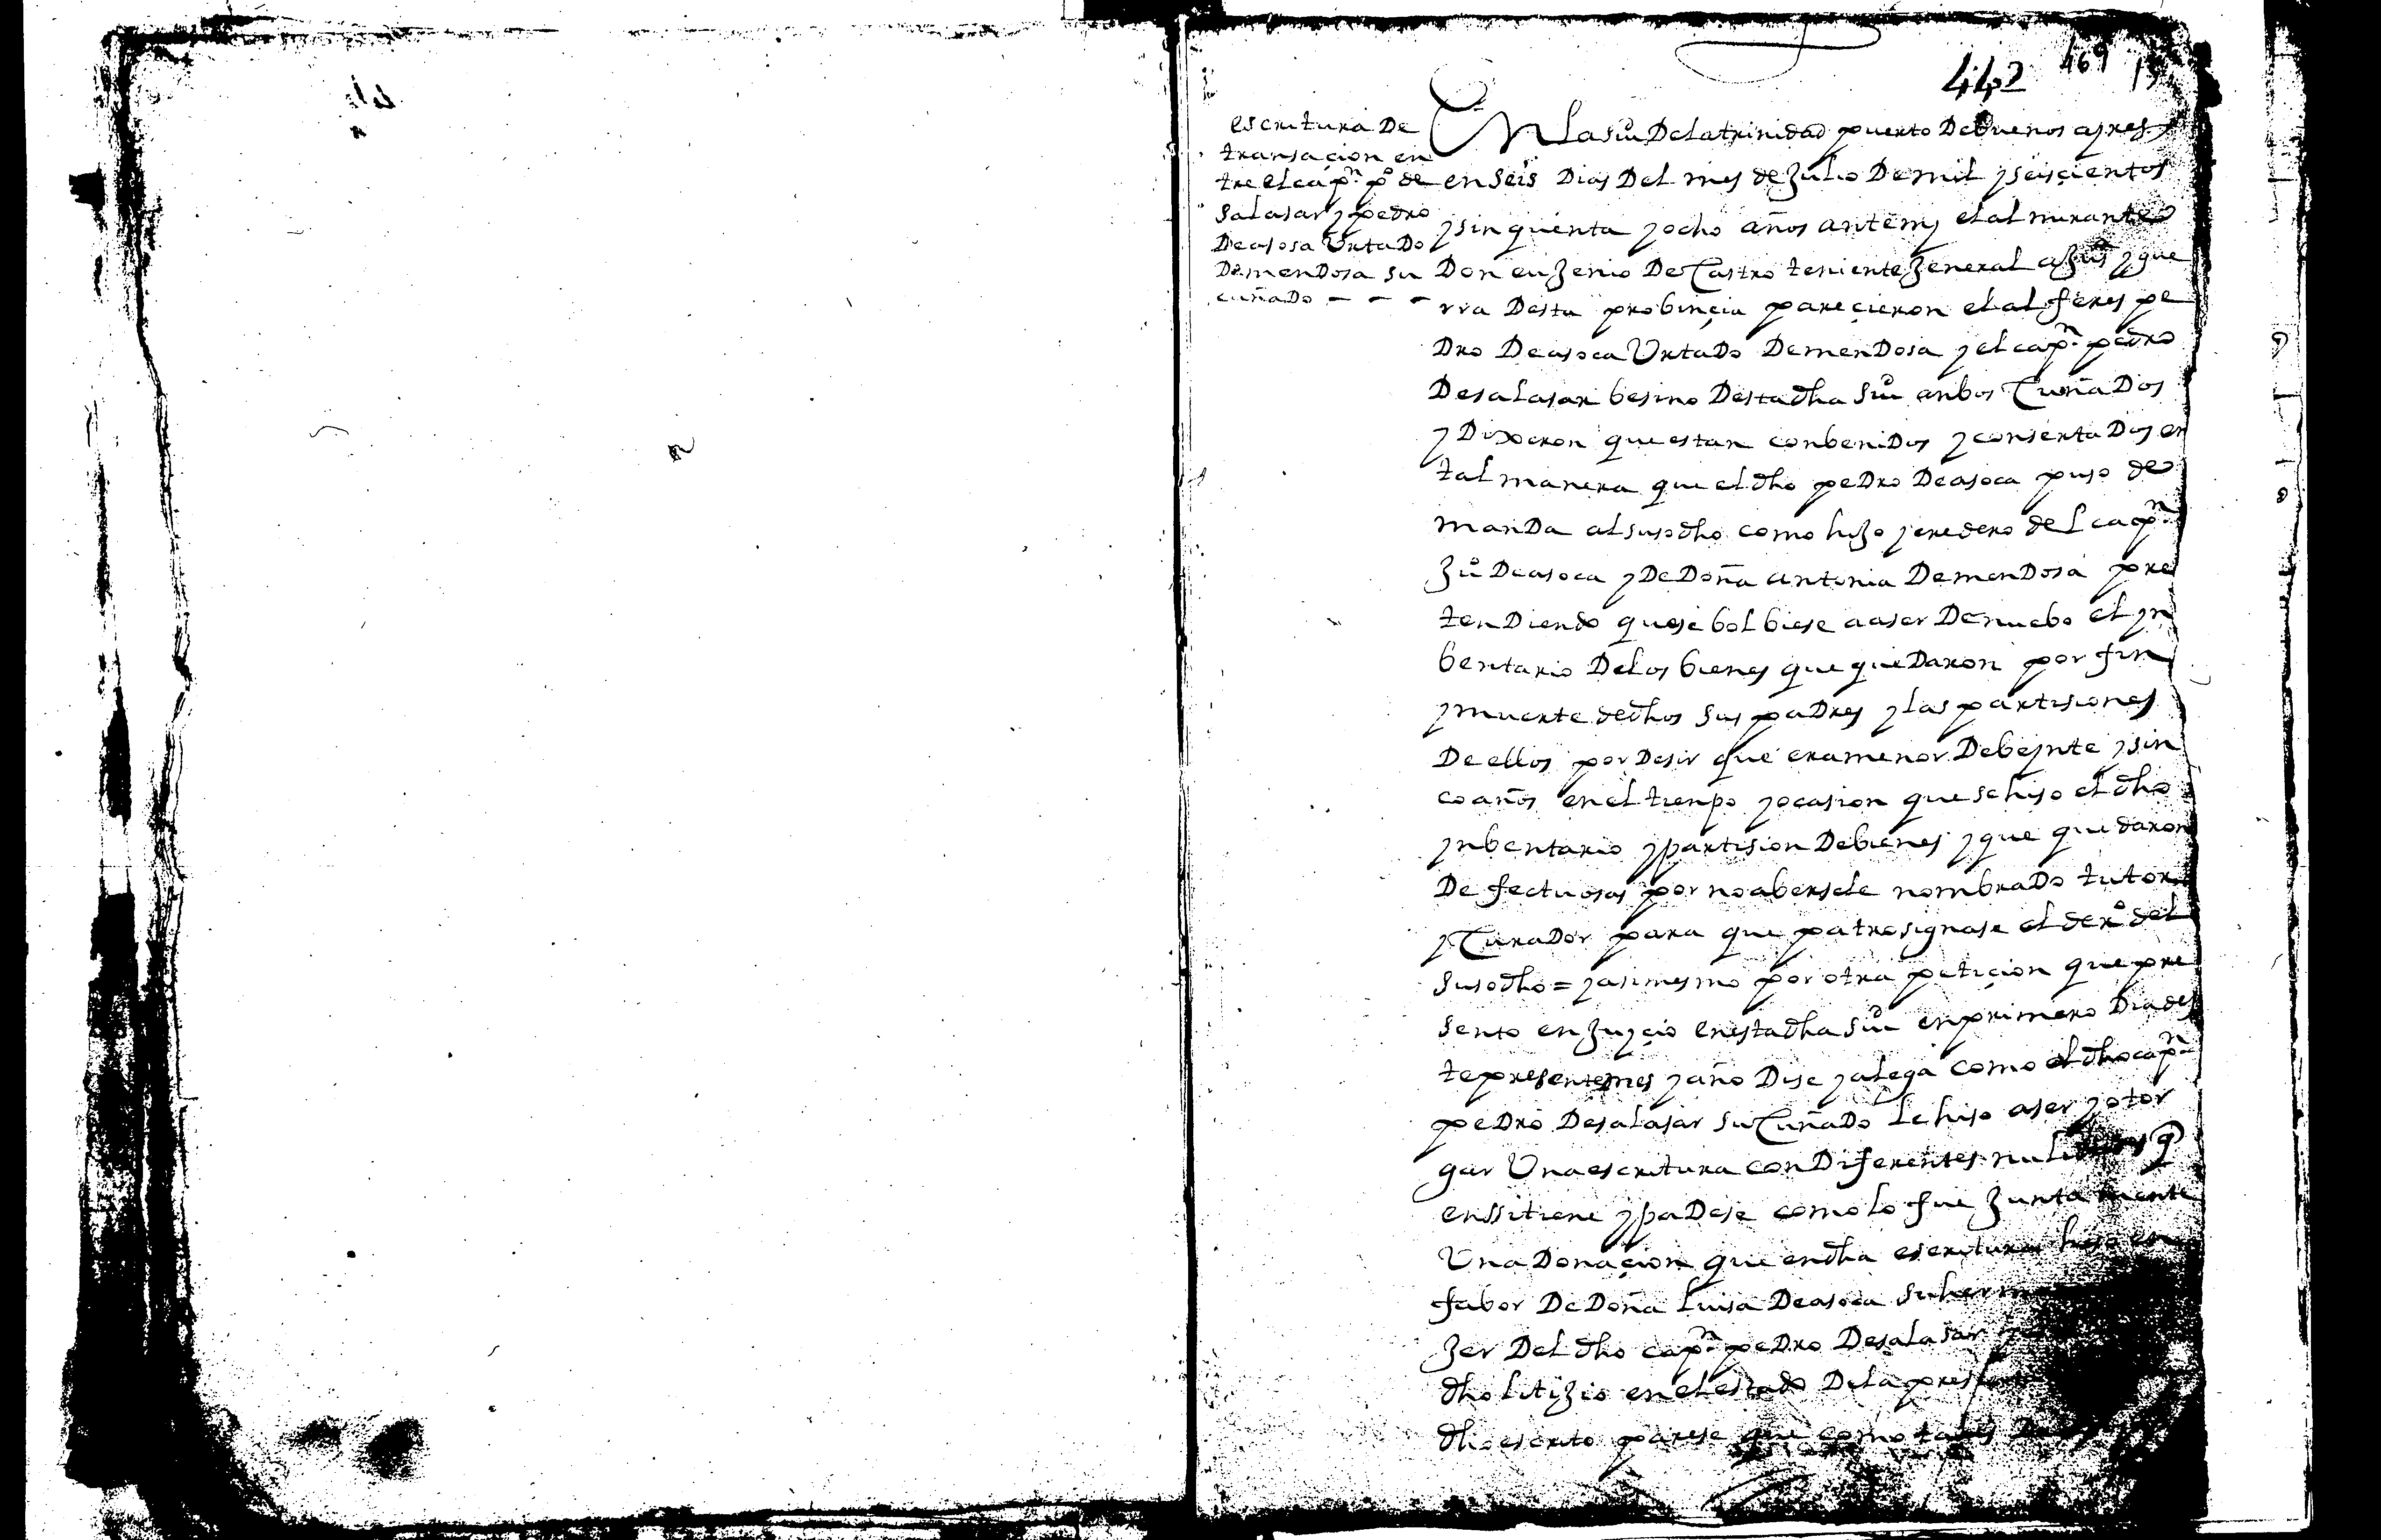 442
469
escritura De
transaçion en
tre el capn po de
salasar y pedro
De asosa Urtado
De mendosa su
cuñado - - -
En la siud De la trinidad puerto De Buenos ayres
en seis Dias Del mes de Julio De mil y seisçientos
y sinquenta y ocho años ante my el almirante
Don eugenio De Castro teniente general a Jusa y gue
rra Desta probinçia pareçieron el alferes pe
Dro De asoca Urtado De mendosa y el capn pedro
De salasar besino Desta dha siud anbos Cuñados
y Dixeron que estan conbenidos y consertados en
tal manera que el dho pedro De asoca puso de
manda al susodho como hijo y eredero del capn
Ju De asoca y De Doña antonia De mendosa pre
tendiendo que se bolbiese a aser De nuebo el yn
bentario De los bienes que quedaron por fin
y muerte de dhos sus padres y las partisiones
De ellos por Desir que era menor De beynte y sin
co años en el tienpo y ocasion que se hiso el dho
ynbentario y partision De bienes y que quedaron
De fectuosas por no aberscle nombrado tutor
y Curador para que patrosignase el dero del
susodho = y asimesmo por otra petiçion que pre
sento en Juyçio en esta dha siud en primero Dia des
te presente mes y año Dise y alega como el dho capn
pedro De salasar su Cuñado le hiso aser y otor
gar Una escritura con Diferentes nulidades q
en ssi tiene y padese como lo fue Juntamente
Una Donaçion que en dha escritura hiso en
fabor De Doña Luisa De asoca su herm
ger Del dho capn pedro De salasar
dho litigio en el estado De la presente
dho escrito parese que como tales